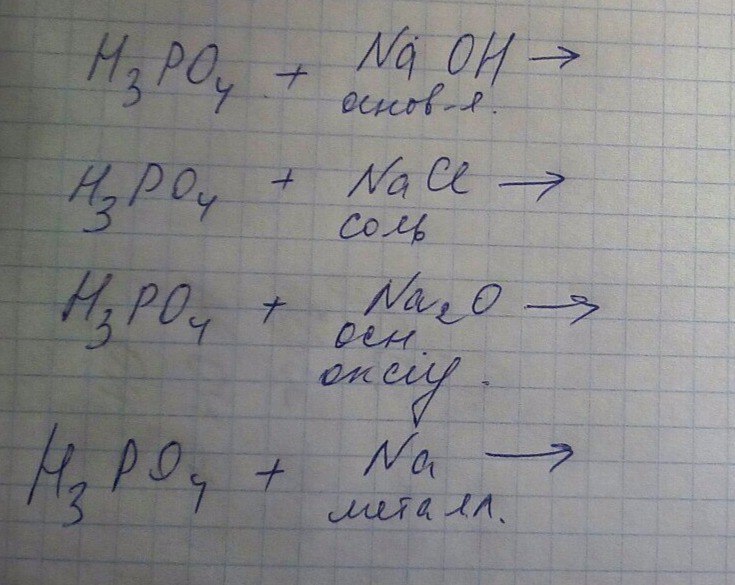 H₃PO₄ + NaOH →
основ-я.
H₃PO₄ + NaCl →
соль
H₃PO₄ + Na₂O →
осн.
оксид.
H₃PO₄ + Na →
металл.